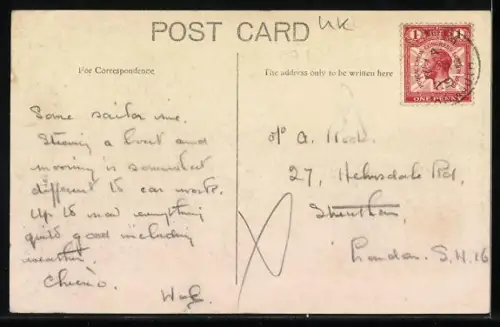 POST CARD
UK
For Correspondence
The address only to be written here
1 1
ONE PENNY
Some sailor me.
Steering a boat and
mooring is somewhat
different to car work.
Up to now everything
quite good including
weather.
Cheerio.
A.
27, Helmsdale Rd,
Streatham,
London. S.W.16